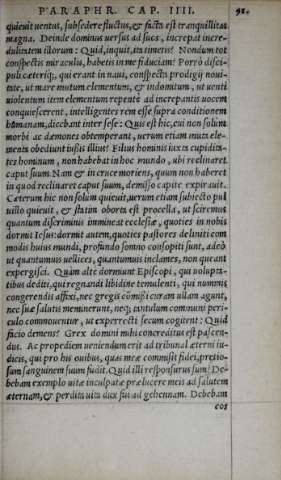 PARAPHR. CAP. IIII. 92
quieuit uentus, subsedere fluctus, & facta est tranquillitas
magna. Deinde dominus uersus ad suos, increpat incre-
dulitatem illorum: Quid, inquit, ita timetis? Nondum tot
conspectis miraculis, habetis in me fiduciam? Porrò disci-
puli cæteriq;, qui erant in naui, conspecta prodigij noui-
tate, ut mare mutum elementum, & indomitum, ut uenti
uiolentum item elementum repentè ad increpantis uocem
conquiescerent, intelligentes rem esse supra conditionem
humanam, dicebant inter sese: Quis est hic, cui non solum
morbi ac dæmones obtemperant, uerum etiam muta ele-
menta obediunt iussis illius? Filius hominis iuxta cupidita-
tes hominum, non habebat in hoc mundo, ubi reclinaret
caput suum. Nam & in cruce moriens, quum non haberet
in quod reclinaret caput suum, demisso capite expirauit.
Cæterum hic non solum quieuit, uerum etiam subiecto pul
uillo quieuit, & statim oborta est procella, ut sciremus
quantum discriminis immineat ecclesiæ, quoties in nobis
dormit Iesus: dormit autem, quoties pastores deliniti com
modis huius mundi, profundo somno consopiti sunt, adeò
ut quantumuis uellices, quantumuis inclames, non queant
expergisci. Quàm altè dormunt Episcopi, qui uolupta-
tibus dediti, qui regnandi libidine temulenti, qui nummis
congerendis affixi, nec gregis cōmißi curam ullam agunt,
nec suæ salutis meminerunt, neq; tantulum communi peri-
culo commouentur, ut experrecti secum cogitent: Quid
facio demens? Grex domini mihi concreditus est pascen-
dus. Ac propediem ueniendum erit ad tribunal æterni iu-
dicis, qui pro his ouibus, quas meæ commisit fidei, pretio-
sum sanguinem suum fudit. Quid illi responsurus sum? De-
bebam exemplo uitæ inculpatæ prælucere meis ad salutem
æternam, & perdita uita dux fui ad gehennam. Debebam
eos